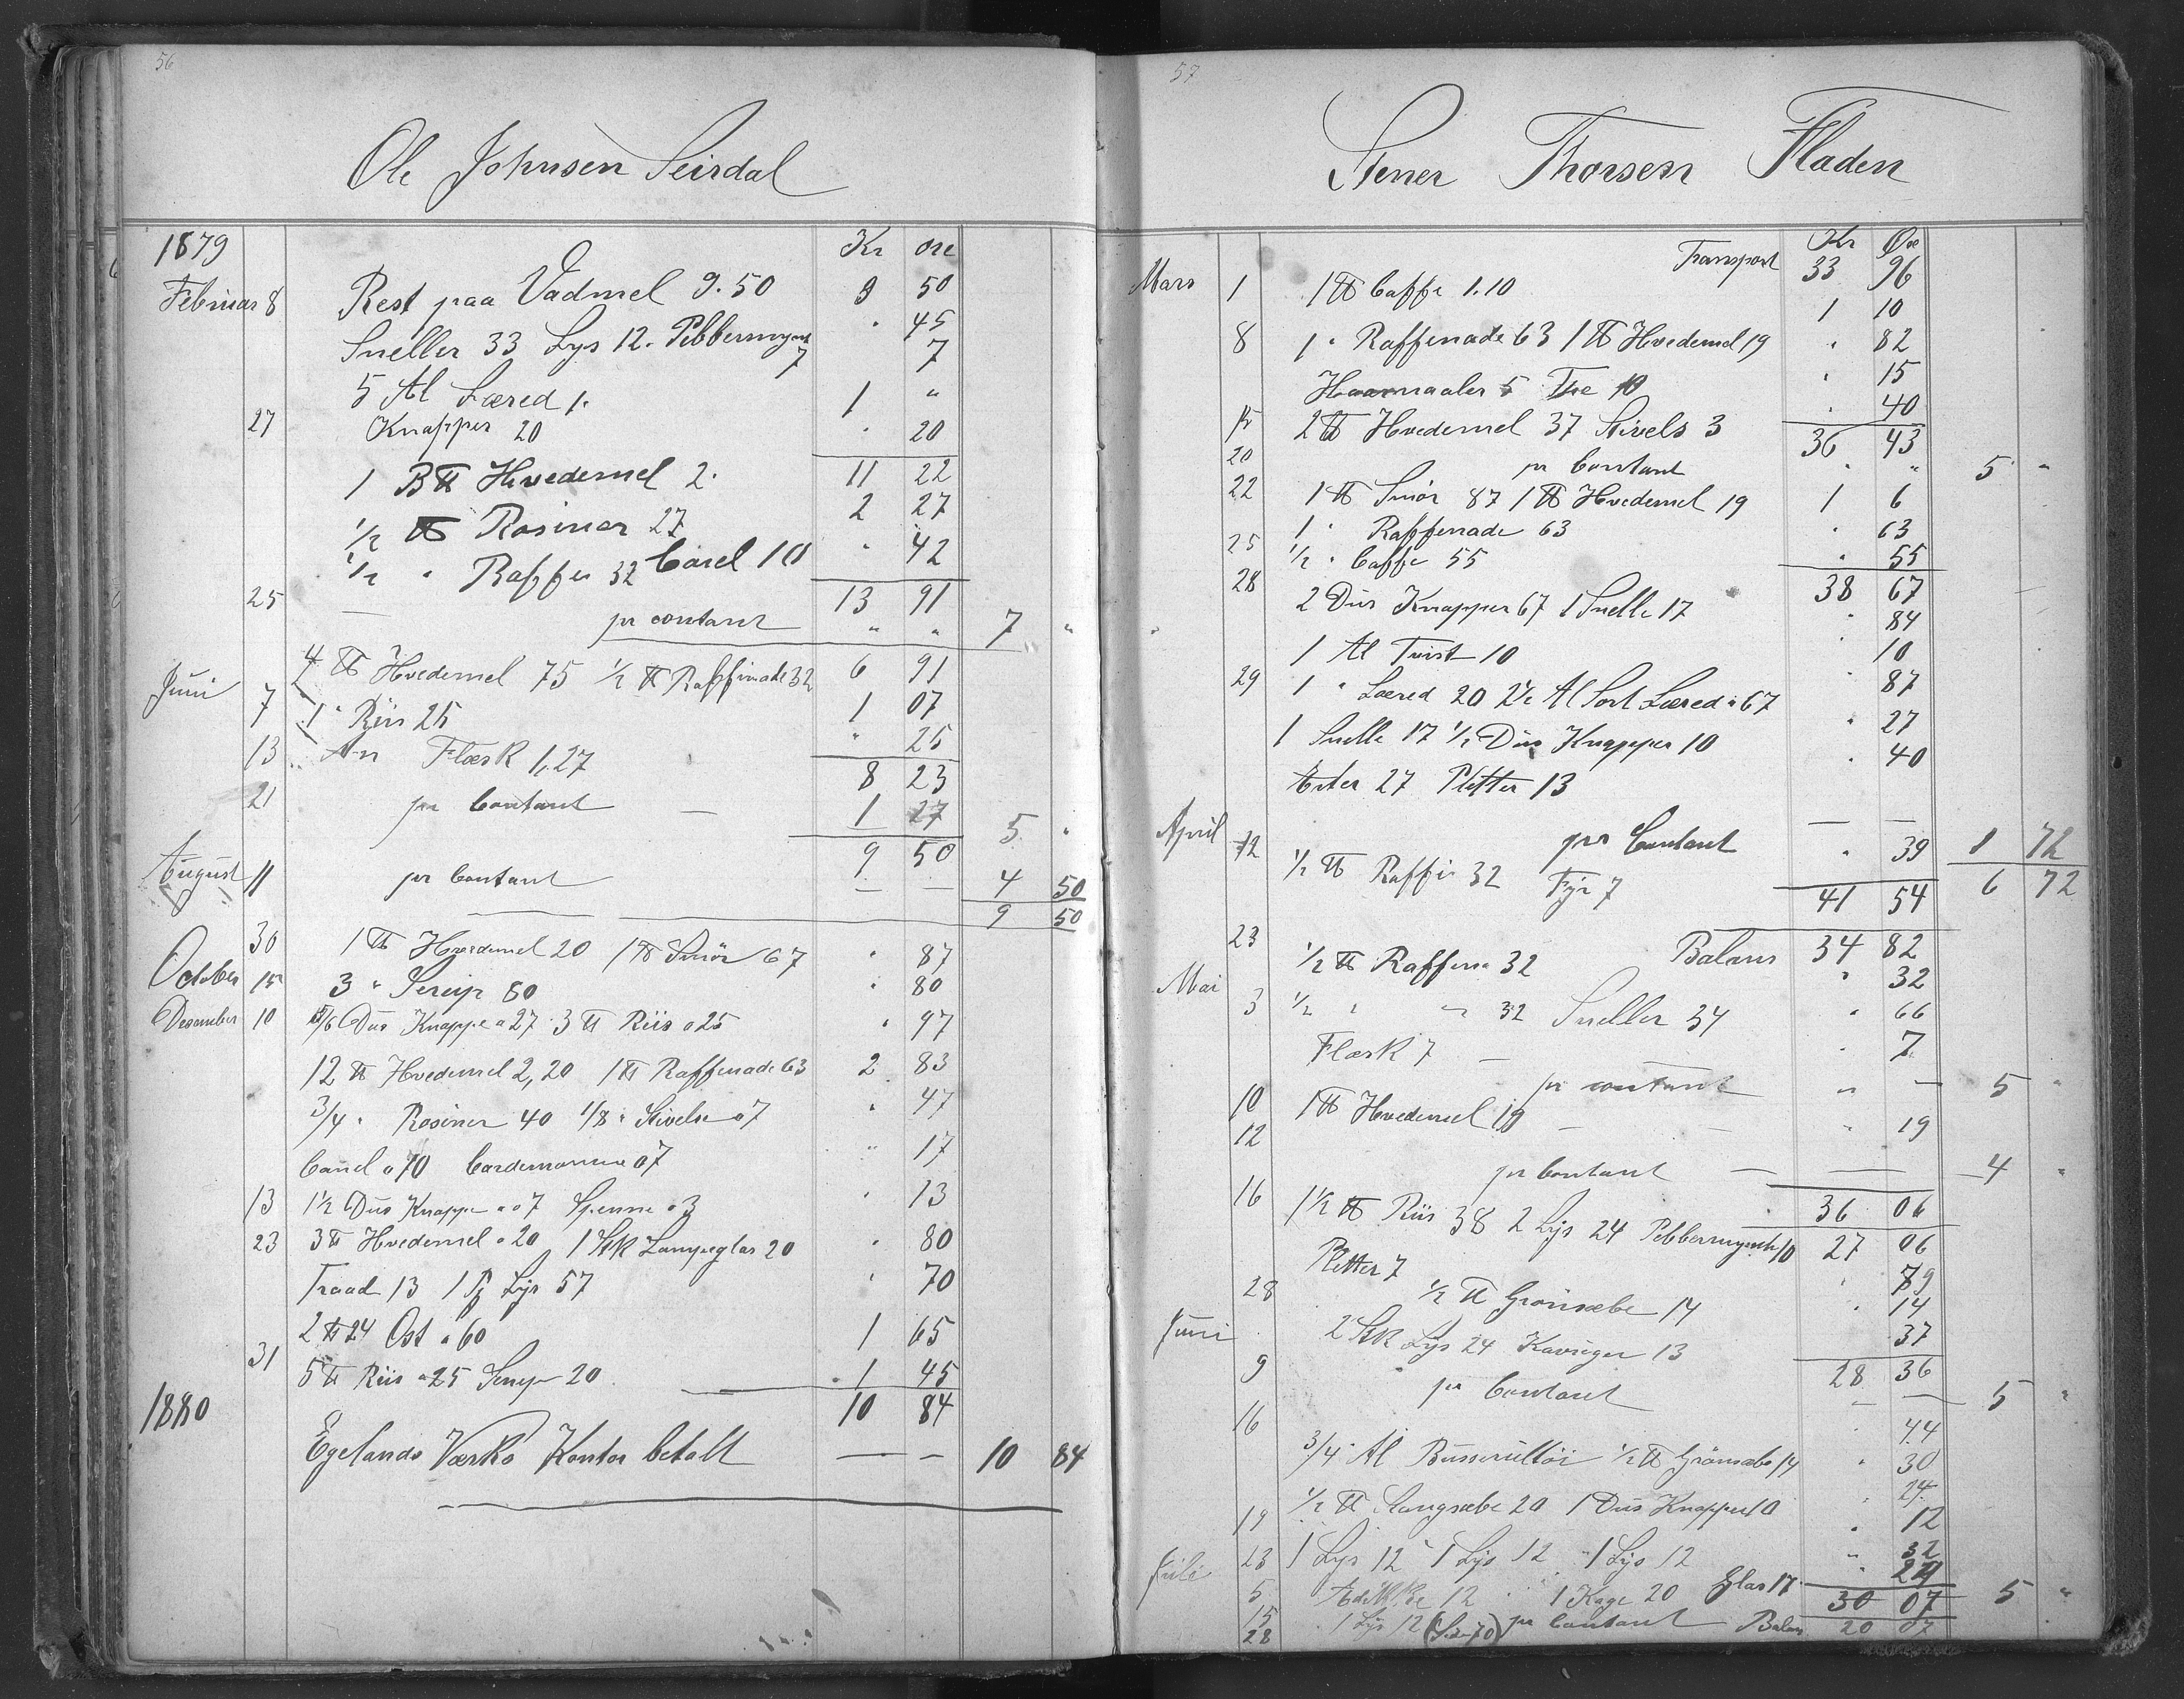 56
Ole Johnsen Seirdal
1879 Kr öre
Februar 8 Rest paa Vadmel 9.50 9 50
Sneller 33 Lys 12. Pebbermynt 7 " 45
7
5 Al Læred 1. 1 "
27 Knapper 20 " 20
11 22
1 B℔ Hvedemel 2. 2 27
1/2 ℔ Rosiner 27
1/2 " Raffi 32 Canel 10 " 42
13 91
25 — pr contant " " 7 "
6 91
Juni 7 4 ℔ Hvedemel 75 1/2 ℔ Raffinade 32 1 07
1 " Riis 25 " 25
8 23
13 Flæsk 1,27 1 27
21 pr Contant — 5 "
9 50
August 11 pr Contant — — 4 50
9 50
30 1 ℔ Hvedemel 20 1 ℔ Smör 67 " 87
October 15 3 " Serup 80 " 80
Desember 10 5/6 Dus Knappe a 27 3 ℔ Riis a 25 " 97
12 ℔ Hvedemel 2,20 1 ℔ Raffenade 63 2 83
3/4 " Rosiner 40 1/8 " Stivelse 07 " 47
Canel a 10 Cardemomme 07 " 17
13 1 1/2 Dus Knappe a 07 Spenne a 3 " 13
23 3 ℔ Hvedemel a 20 1 Stk Lampeglas 20 " 80
Traad 13 1 Lys 57 " 70
2 ℔ 24 Ost a 60 1 65
31 5 ℔ Riis a 25 Serup 20 1 45
10 84
1880
Egelands Værks Kontor betalt — — 10 84
57
Stener Thorsen Fladen
Kr Öre
Transport 33 96
Mars 1 1 ℔ Caffe 1.10 1 10
8 1 " Raffenade 63 1 ℔ Hvedemel 19 " 82
Haarnaaler 5 The 10 " 15
15 2 ℔ Hvedemel 37 Stivels 3 " 40
36 43
20 pr Contant " " 5 "
22 1 ℔ Smör 87 1 ℔ Hvedemel 19 1 6
1 " Raffenade 63 " 63
25 1/2 " Caffe 55 " 55
38 67
28 2 Dus Knapper 67 1 Snelle 17 " 84
1 Al Tvist 10 " 10
29 1 " Læred 20 Al Sort Læred a 67 " 87
1 Snelle 17 1/2 Dus Knapper 10 " 27
Erter 27 Pletter 13 " 40
April pr Contant — — 1 72
12 1/2 ℔ Raffi 32 Fyr 7 " 39
6 72
41 54
Balans 34 82
23 1/2 ℔ Raffena 32 " 32
Mai 3 1/2 " " 32 Sneller 34 " 66
Flæsk 7 — " 7
pr contant " — 5 "
10 1 ℔ Hvedemel 19 — " 19
12 pr Contant — — 4 "
36 06
27 06
16 1 1/2 ℔ Riis 38 2 Lys 24 Pebbermynte 10
Pletter 7 " 79
28 1/2 ℔ Grönsæbe 14 " 14
Juni 2 Stk Lys 24 Kavringer 13 37
28 36
9 pr Contant — — 5 "
16 3/4 Al Busserultöi 1/2 ℔ Grönsæbe 14 " 44
1/2 ℔ Stangsæbe 20 1 Dus Knapper 10 " 30
19 1 Lys 12 " 1 Lys 12 " 1 Lys 12 24
23 " 12
Juli 5 Eddikke 12 1 Kage 20 Glas 17 " 32
15 1 Lys 12 " 29
30 07 5 "
28 pr Contant Balans 20 07